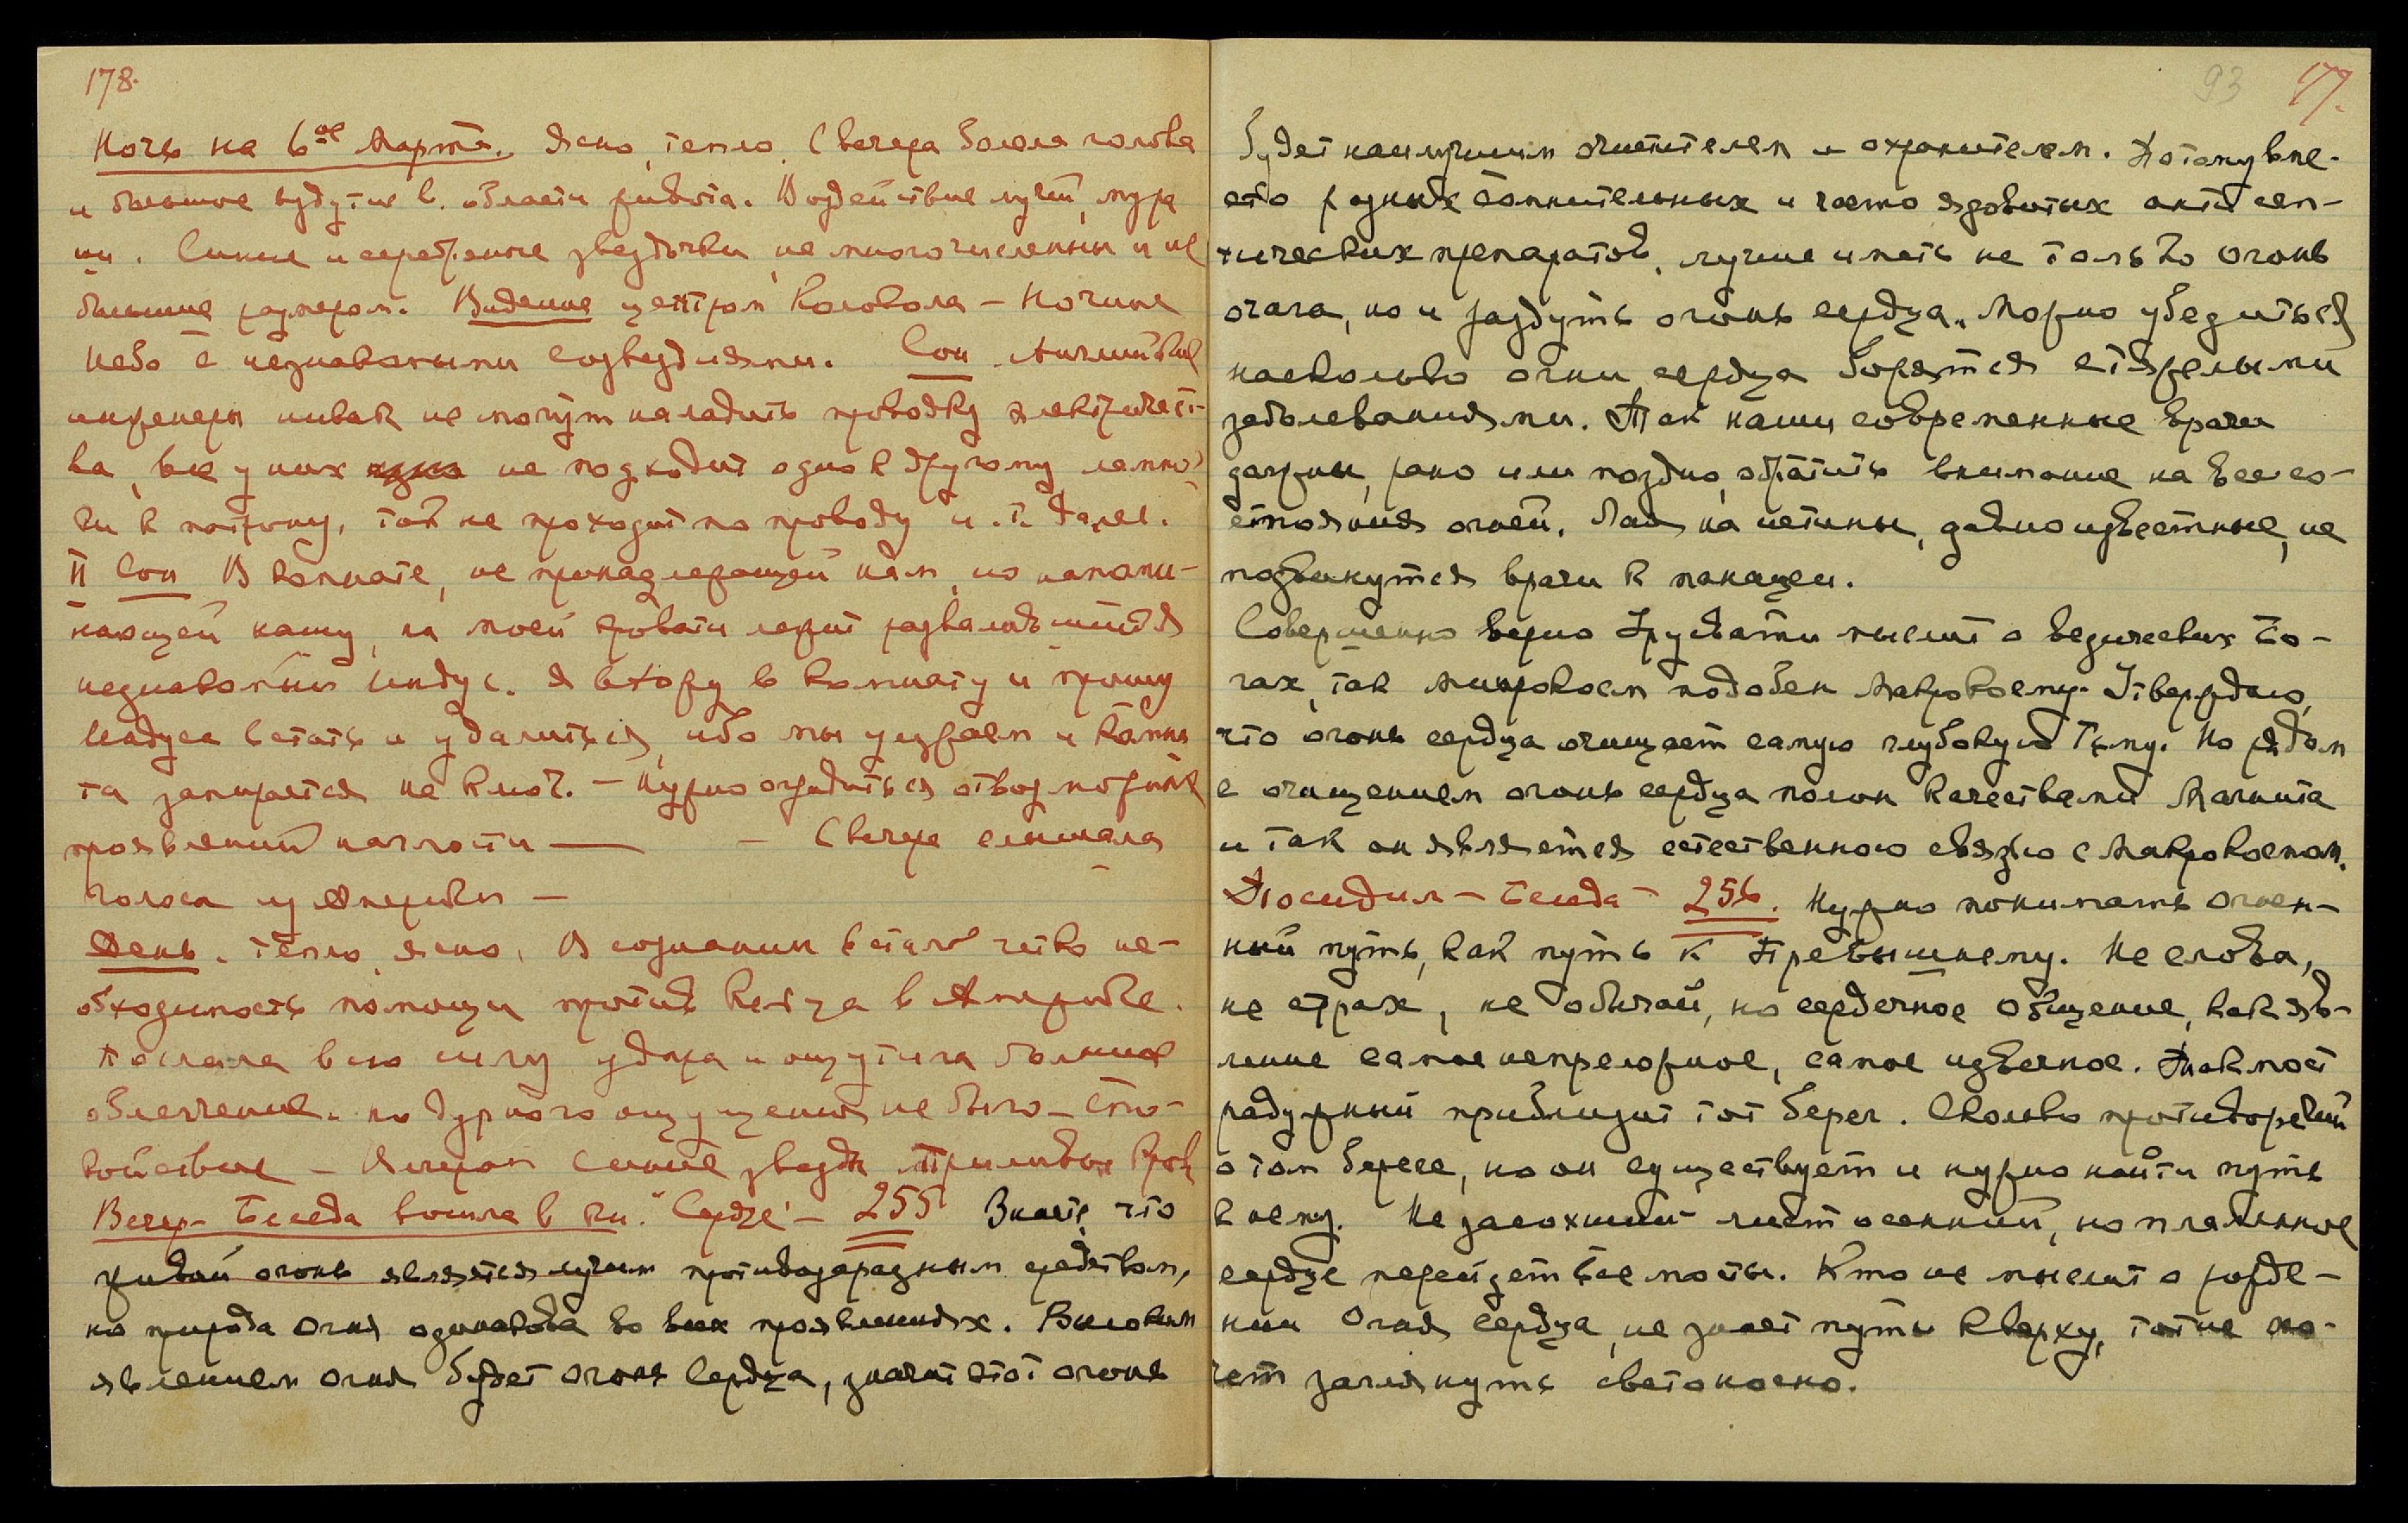 178.
Ночь на 6ое Марта. Ясно, тепло. С вечера болела голова
и большое вздутие в области живота. Воздействие лучей, мура
ши. Синие и серебряные звездочки, не многочисленны и не
большие размером. Видение центром Колокола – Ночное
небо с незнакомыми созвездиями. Сон Английские
инженеры никак не могут наладить проводку электричест-
ва, все у них не подходит одно к другому, лампоч
ки к патрону, ток не проходит по проводу и т. далее.
II Сон В комнате, не принадлежащей нам, но напоми-
нающей нашу, на моей кровати лежит развалившийся
незнакомый Индус. Я вхожу в комнату и прошу
Индуса встать и удалиться, ибо мы уезжаем и комна
та запирается на ключ. – Нужно оградиться от возможных
проявлений наглости — – С вечера слышала
голоса из Америки –
День. Тепло, ясно. В сознании встала четко не-
обходимость помощи против в Америке.
Послала всю силу удара и ощутила большое
облегчение. но дурного ощущения не было – спо-
койствие – Вечером синие звезды Приливы Кров
Вечер – Беседа вошла в кн. "Сердце" – 255 Знаете, что
живой огонь является лучшим противозаразным средством,
но природа Огня одинакова во всех проявлениях. Высоким
явлением огня будет огонь Сердца, значит этот огонь
93 177.
будет наилучшим очистителем и охранителем. Потому вме-
сто разных сомнительных и часто ядовитых антисеп-
тических препаратов, лучше иметь не только огонь
очага, но и раздуть огонь сердца. Можно убедиться
насколько огни сердца борятся с тяжелыми
заболеваниями. Так наши современные врачи
должны, рано или поздно, обратить внимание на все со-
стояния огней. Лишь на истины, давно известные, не
подвинутся врачи к панацеи.
Совершенно верно Урусвати мыслит о ведических Бо-
гах, так Микрокосм подобен Макрокосму. Утверждаю,
что огонь сердца очищает самую глубокую Тьму. Но рядом
с очищением огонь сердца полон качествами Магнита
и так он является естественною связью с Макрокосмом.
Посидим – Беседа – 256. Нужно понимать огнен-
ный путь, как путь к Превышнему. Не слова,
не страх, не обычай, но сердечное общение, как яв-
ление самое непреложное, самое извечное. Так мост
радужный приблизит тот берег. Сколько противоречий
о том береге, но он существует и нужно найти путь
к нему. Не засохший лист осенний, но пламенное
сердце перейдет все мосты. Кто не мыслит о рожде-
нии Огня сердца, не знает путь кверху, тот не хо-
чет заглянуть светоносно.